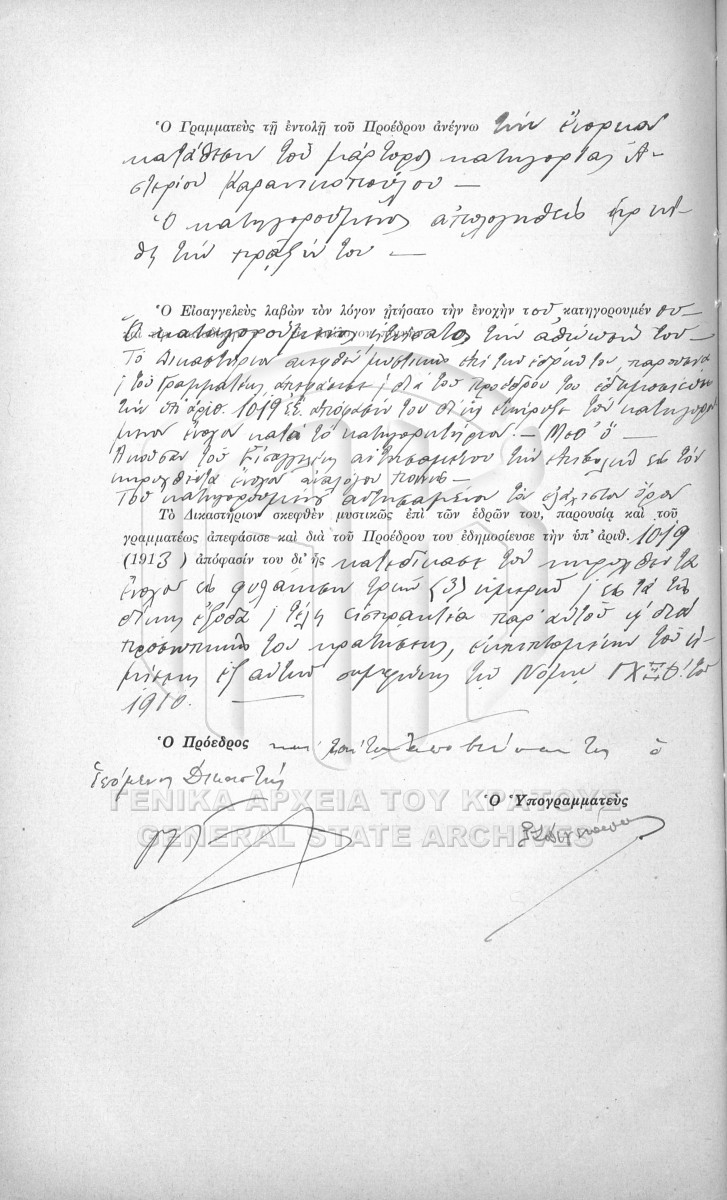 Ὁ Γραμματεὺς τῇ ἐντολῇ τοῦ Προέδρου ἀνέγνω τὴν ἔνορκον
κατάθεσιν τοῦ μάρτυρος κατηγορίας Ἀ-
στερίου Καρανικοπούλου —
Ὁ κατηγορούμενος ἀπολογηθεὶς
τὴν πρᾶξίν του —
Ὁ Εἰσαγγελεὺς λαβὼν τὸν λόγον ᾐτήσατο τὴν ἐνοχὴν τοῦ κατηγορουμένου
Ὁ κατηγορούμενος ᾐτήσατο τὴν ἀθώωσίν του —
Τὸ Δικαστήριον σκεφθὲν μυστικῶς ἐπὶ τῶν ἑδρῶν του, παρουσίᾳ
καὶ τοῦ Γραμματέως ἀπεφάσισε καὶ διὰ τοῦ Προέδρου του ἐδημοσίευσε
τὴν ὑπ' ἀριθ. 1019 ἐ.ἔ. ἀπόφασίν του δι' ἧς ἐκήρυξε τὸν κατηγορού-
μενον ἔνοχον κατὰ τὸ κατηγορητήριον. — Μεθ' ὃ —
Ἀκοῦσαν τοῦ Εἰσαγγελέως αἰτησαμένου τὴν ἐπιβολὴν εἰς τὸν
κηρυχθέντα ἔνοχον ἀναλόγου ποινῆς —
Τοῦ κατηγορουμένου αἰτησαμένου τὸν ἐλάχιστον ὅρον
Τὸ Δικαστήριον σκεφθὲν μυστικῶς ἐπὶ τῶν ἑδρῶν του, παρουσίᾳ καὶ τοῦ
γραμματέως ἀπεφάσισε καὶ διὰ τοῦ Προέδρου του ἐδημοσίευσε τὴν ὑπ' ἀριθ. 1019
(1913) ἀπόφασίν του δι' ἧς κατεδίκασε τὸν κηρυχθέντα
ἔνοχον εἰς φυλάκισιν τριῶν (3) ἡμερῶν καὶ εἰς τὰ τῆς
δίκης ἔξοδα καὶ τέλη εἰσπρακτέα παρ' αὐτοῦ καὶ διὰ
προσωπικῆς του κρατήσεως, ἐκπιπτομένης τοῦ
ἐξ αὐτῶν συμφώνως τῷ Νόμῳ ΓΧΞΘ' τοῦ
1910. —
Ὁ Πρόεδρος ὁ
Γενόμενος Δικαστὴς
Ὁ Ὑπογραμματεὺς
ΓΕΝΙΚΑ ΑΡΧΕΙΑ ΤΟΥ ΚΡΑΤΟΥΣ
GENERAL STATE ARCHIVES